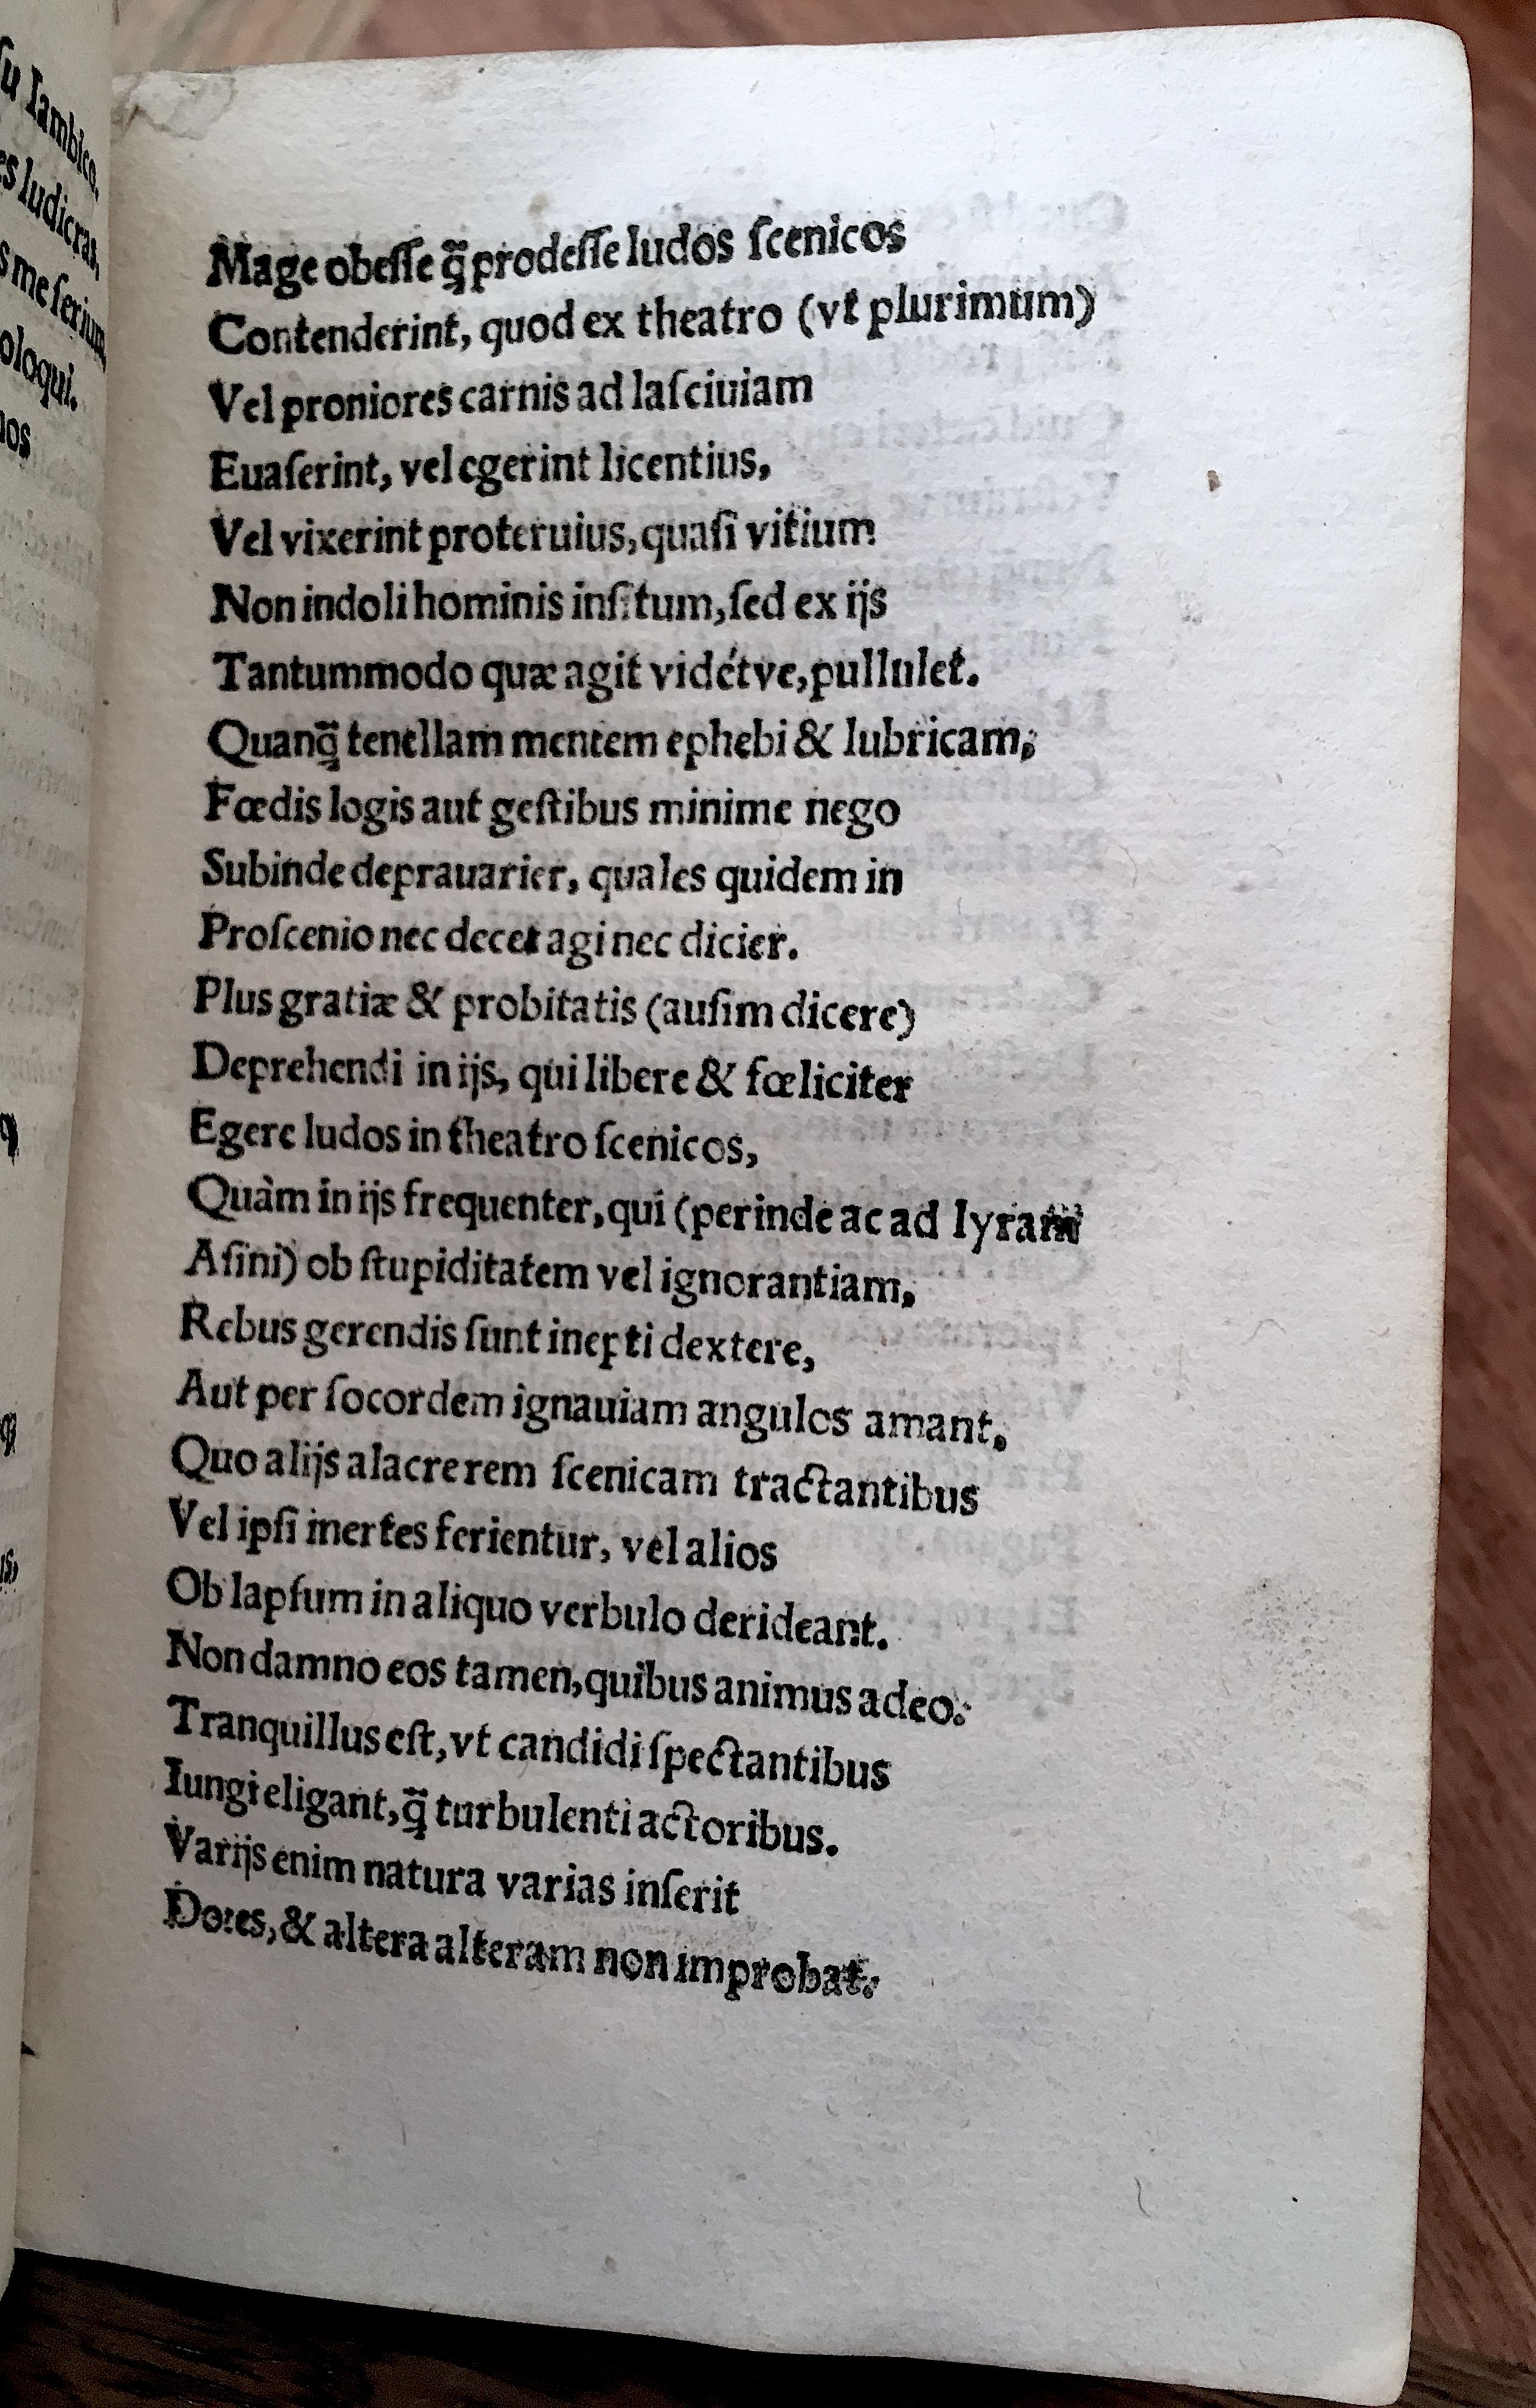 ſu Iambico,
es ludicras,
s me ſerium
oloqui.
nos
Mage obeſſe q̃ prodeſſe ludos ſcenicos
Contenderint, quod ex theatro (vt plurimum)
Vel proniores carnis ad laſciuiam
Euaſerint, vel egerint licentius,
Vel vixerint proteruius, quaſi vitium
Non indoli hominis inſitum, ſed ex ijs
Tantummodo quæ agit vidétve, pullulet.
Quanq̃ tenellam mentem ephebi & lubricam,
Fœdis logis aut geſtibus minime nego
Subinde deprauarier, quales quidem in
Proſcenio nec decet agi nec dicier.
Plus gratiæ & probitatis (auſim dicere)
Deprehendi in ijs, qui libere & fœliciter
Egere ludos in theatro ſcenicos,
Quàm in ijs frequenter, qui (perinde ac ad lyram
Aſini) ob ſtupiditatem vel ignorantiam,
Rebus gerendis ſunt inepti dextere,
Aut per ſocordem ignauiam angulos amant,
Quo alijs alacre rem ſcenicam tractantibus
Vel ipſi inertes ferientur, vel alios
Ob lapſum in aliquo verbulo derideant.
Non damno eos tamen, quibus animus adeo
Tranquillus eſt, vt candidi ſpectantibus
Iungi eligant, q̃ turbulenti actoribus.
Varijs enim natura varias inſerit
Dotes, & altera alteram non improbat.